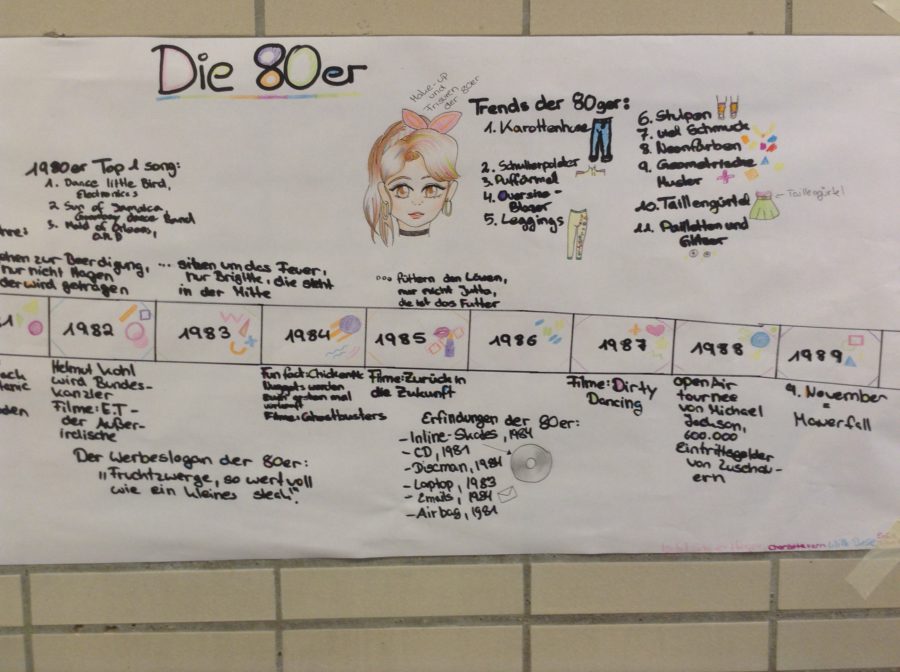 Die 80er
Make-up
und
Frisuren
der 80er
Trends der 80ger:
1. Karottenhose
2. Schulterpolster
3. Puffärmel
4. Oversize-
Blazer
5. Leggings
6. Stulpen
7. viel Schmuck
8. Neonfarben
9. Geometrische
Muster
10. Taillengürtel
← Taillengürtel
11. Pailletten und
Glitzer
1980er Top 1 song:
1. Dance little Bird,
Electronics
2. Sun of Jamaica
Goombay dance Band
3. Maid of Orleans,
O.M.D
hre:
ehen zur Beerdigung,
nur nicht Hagen
der wird getragen
... sitzen um das Feuer,
nur Brigitte, die steht
in der Mitte
... füttern den Löwen,
nur nicht Jutta,
die ist das Futter
1
1982
1983
1984
1985
1986
1987
1988
1989
Helmut Kohl
wird Bundes-
kanzler
Filme: E.T-
der Außer-
irdische
Fun fact: Chicken
Nuggets wurden
zum ersten mal
verkauft
Filme: Ghostbusters
Filme: Zurück in
die Zukunft
Filme: Dirty
Dancing
open Air
tournee
von Michael
Jackson,
600.000
Eintrittsgelder
von Zuschau-
ern
9. November
=
Mauerfall
Der Werbeslogan der 80er:
"Fruchtzwerge, so wertvoll
wie ein kleines steak".
Erfindungen der 80er:
- Inline-Skates, 1984
- CD, 1981
- Discman, 1984
- Laptop, 1983
- Emails, 1984
- Airbag, 1981